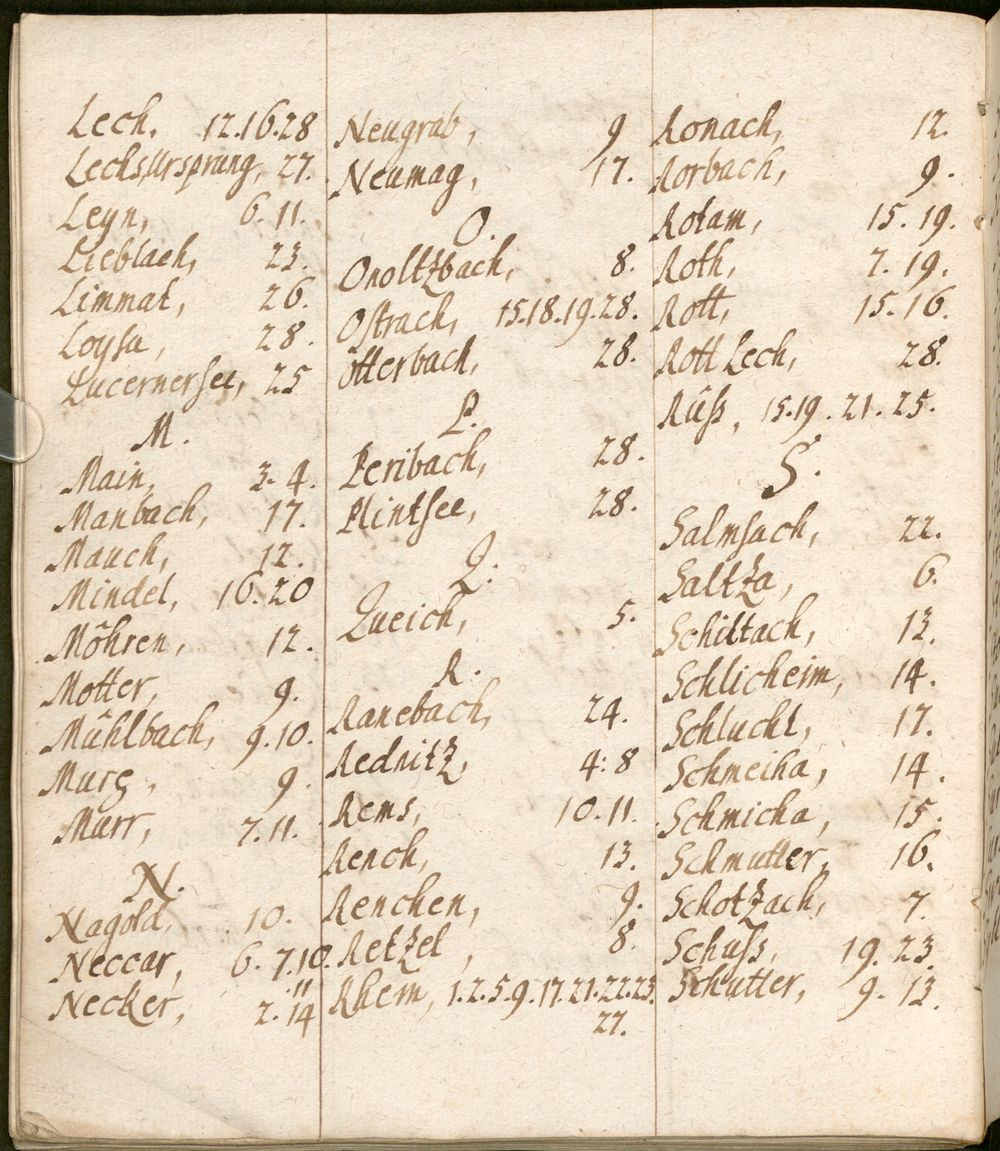 Lech. 12.16.28
LechsUrsprung, 27.
Leyn, 6. 11.
Lieblach, 23.
Limmat, 26.
Loysa, 28.
Lucernersee, 25
M.
Main, 3. 4.
Manbach, 17.
Mauch, 12.
Mindel, 16.20
Möhren, 12.
Motter, 9.
Mühlbach, 9.10.
Murg, 9.
Murr, 7.11.
N.
Nagold, 10.
Neccar, 6. 7.10.
11
Necker, 2. 14
Neugrab, 9
Neumag, 17.
O.
Onoltzbach, 8.
Ostrach, 15.18.19.28.
Otterbach, 28.
P.
Peribach, 28.
Plintsee, 28.
Q.
Queich, 5.
R.
Ranebach, 24.
Rednitz, 4: 8
Rems, 10.11.
Rench, 13.
Renchen, 9.
Retzel, 8.
Rhein, 1.2.5.9.17.21.22.23.
27.
Ronach, 12.
Rorbach, 9.
Rotam, 15. 19.
Roth, 7. 19.
Rott, 15.16.
Rott Lech, 28.
Rüß, 15.19. 21. 25.
S.
Salmsach, 22.
Saltza, 6.
Schiltach, 13.
Schlicheim, 14.
Schlucht, 17.
Schmeiha, 14.
Schmicha, 15.
Schmutter, 16.
Schotzach, 7.
Schuss, 19. 23.
Schutter, 9. 13.